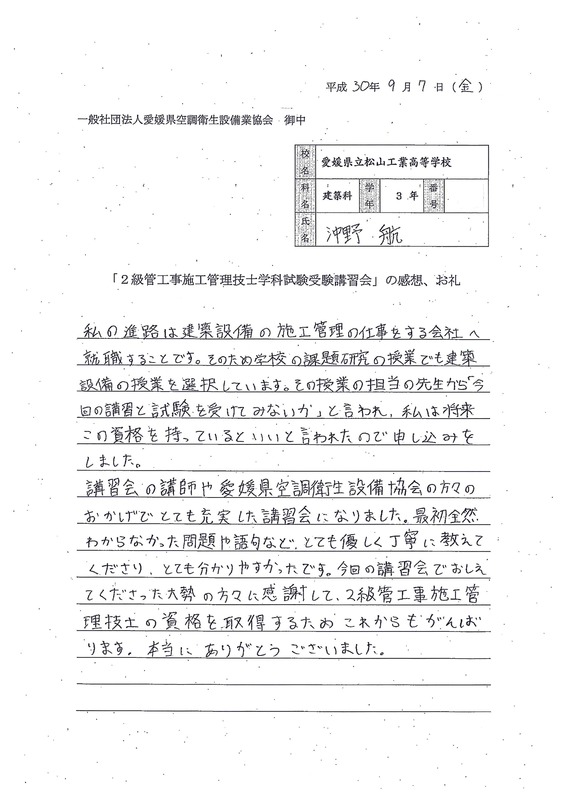 平成 30年 9月 7日（金）
一般社団法人愛媛県空調衛生設備業協会　御中
校名 愛媛県立松山工業高等学校
科名 建築科 学年 3年 番号
氏名 沖野 航
「２級管工事施工管理技士学科試験受験講習会」の感想、お礼
私の進路は建築設備の施工管理の仕事をする会社へ
就職することです。そのため学校の課題研究の授業でも建築
設備の授業を選択しています。その授業の担当の先生から「今
回の講習と試験を受けてみないか」と言われ、私は将来
この資格を持っているといいと言われたので申し込みを
しました。
講習会の講師や愛媛県空調衛生設備協会の方々の
おかげでとても充実した講習会になりました。最初全然
わからなかった問題や語句など、とても優しく丁寧に教えて
くださり、とても分かりやすかったです。今回の講習会でおしえ
てくださった大勢の方々に感謝して、2級管工事施工管
理技士の資格を取得するためこれからもがんば
ります。本当にありがとうございました。